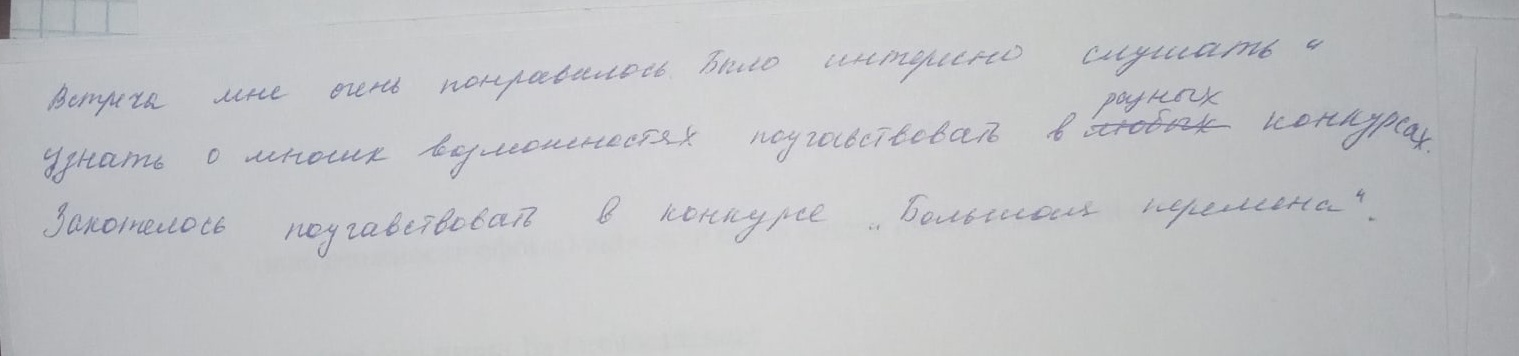 Встреча мне очень понравилось. Было интересно слушать и
узнать о многих возможностях поучавствовать в разных конкурсах.
Захотелось поучавствовать в конкурсе „Большая перемена“.